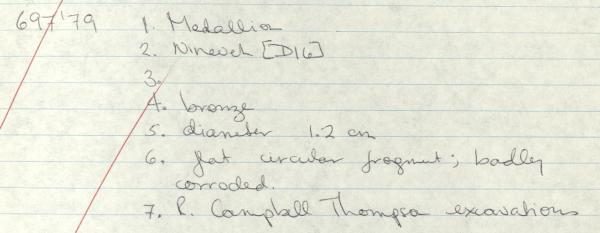 697'79 1. Medallion
2. Nineveh [D16]
3.
4. bronze
5. diameter 1.2 cm
6. flat circular fragment; badly
corroded.
7. R. Campbell Thompson excavations